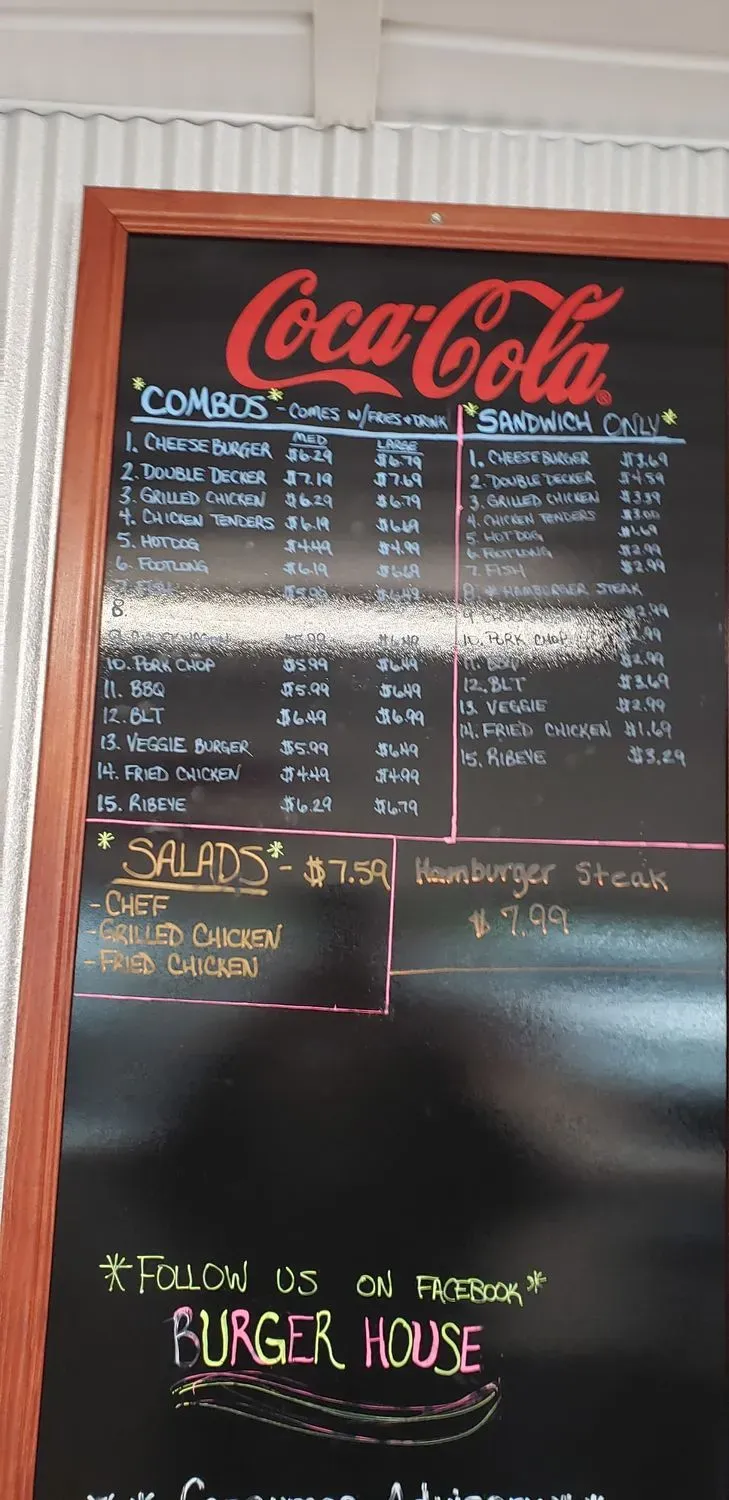 Coca-Cola®
*COMBOS* - COMES W/FRIES + DRINK
MED LARGE
1. CHEESEBURGER $6.29 $6.79
2. DOUBLE DECKER $7.19 $7.69
3. GRILLED CHICKEN $6.29 $6.79
4. CHICKEN TENDERS $6.19 $6.69
5. HOTDOG $4.49 $4.99
6. FOOTLONG $6.19 $6.69
7. FISH $5.99 $6.49
8.
9. $5.99 $6.49
10. PORK CHOP $5.99 $6.49
11. BBQ $5.99 $6.49
12. BLT $6.49 $6.99
13. VEGGIE BURGER $5.99 $6.49
14. FRIED CHICKEN $4.49 $4.99
15. RIBEYE $6.29 $6.79
*SANDWICH ONLY*
1. CHEESEBURGER $3.69
2. DOUBLE DECKER $4.59
3. GRILLED CHICKEN $3.39
4. CHICKEN TENDERS $3.00
5. HOTDOG $1.69
6. FOOTLONG $2.99
7. FISH $2.99
8. * HAMBURGER STEAK
9. $2.99
10. PORK CHOP
11. BBQ $2.99
12. BLT $3.69
13. VEGGIE $2.99
14. FRIED CHICKEN $1.69
15. RIBEYE $3.29
*SALADS* - $7.59
- CHEF
- GRILLED CHICKEN
- FRIED CHICKEN
Hamburger Steak
$7.99
*FOLLOW US ON FACEBOOK*
BURGER HOUSE
Consumer Advisory